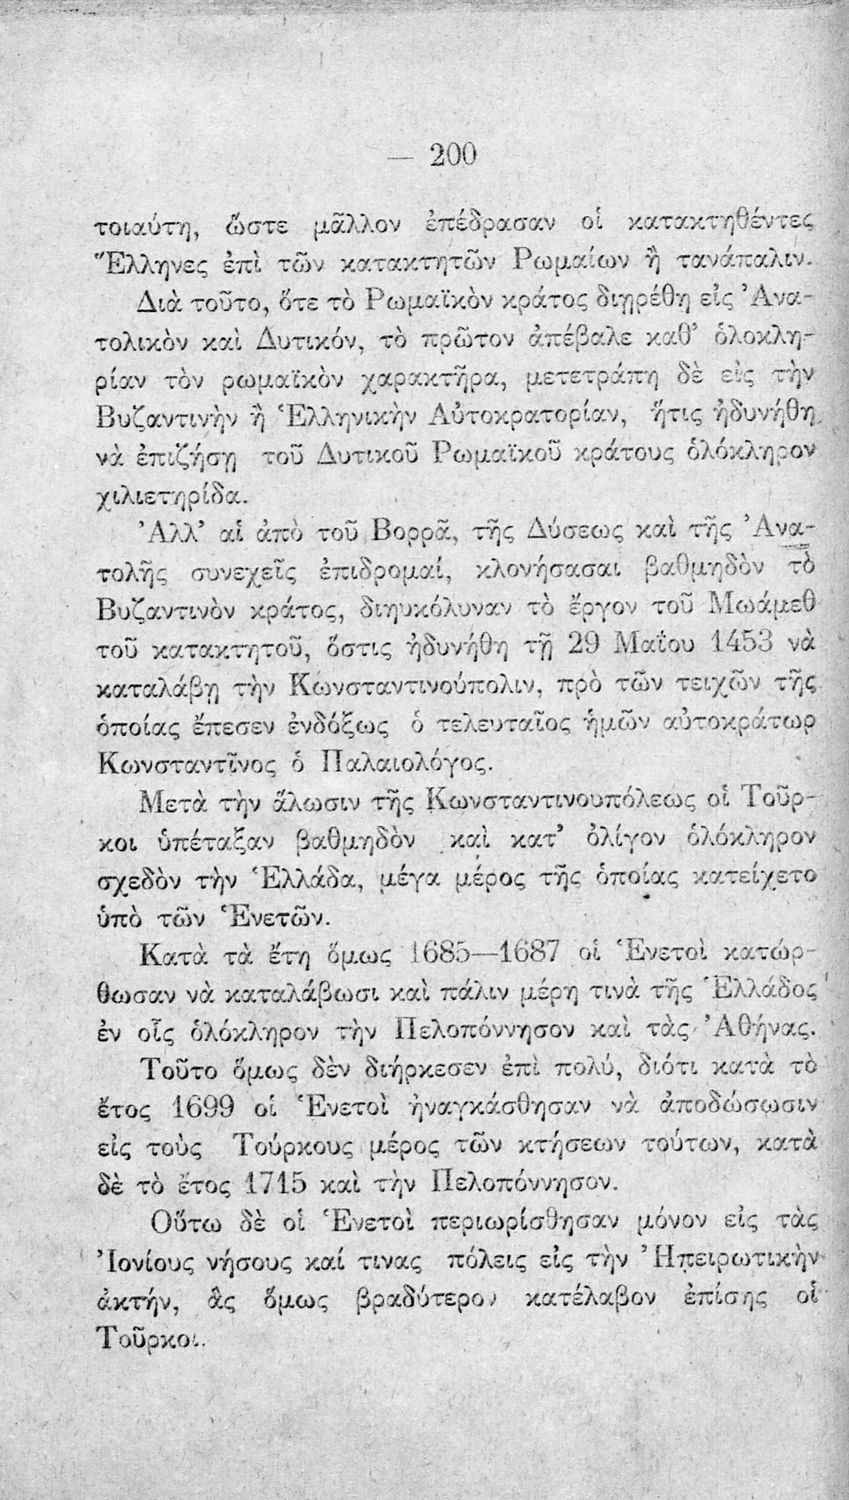 — 200
τοιαύτη, ὥστε μᾶλλον ἐπέδρασαν οἱ κατακτηθέντες
Ἕλληνες ἐπὶ τῶν κατακτητῶν Ῥωμαίων ἢ τανάπαλιν.
Διὰ τοῦτο, ὅτε τὸ Ῥωμαϊκὸν κράτος διῃρέθη εἰς Ἀνα-
τολικὸν καὶ Δυτικόν, τὸ πρῶτον ἀπέβαλε καθ’ ὁλοκλη-
ρίαν τὸν ρωμαϊκὸν χαρακτῆρα, μετετράπη δὲ εἰς τὴν
Βυζαντινὴν ἢ Ἑλληνικὴν Αὐτοκρατορίαν, ἥτις ἠδυνήθη
νὰ ἐπιζήσῃ τοῦ Δυτικοῦ Ῥωμαϊκοῦ κράτους ὁλόκληρον
χιλιετηρίδα.
Ἀλλ’ αἱ ἀπὸ τοῦ Βορρᾶ, τῆς Δύσεως καὶ τῆς Ἀνα-
τολῆς συνεχεῖς ἐπιδρομαί, κλονήσασαι βαθμηδὸν τὸ
Βυζαντινὸν κράτος, διηυκόλυναν τὸ ἔργον τοῦ Μωάμεθ
τοῦ κατακτητοῦ, ὅστις ἠδυνήθη τῇ 29 Μαΐου 1453 νὰ
καταλάβῃ τὴν Κωνσταντινούπολιν, πρὸ τῶν τειχῶν τῆς
ὁποίας ἔπεσεν ἐνδόξως ὁ τελευταῖος ἡμῶν αὐτοκράτωρ
Κωνσταντῖνος ὁ Παλαιολόγος.
Μετὰ τὴν ἅλωσιν τῆς Κωνσταντινουπόλεως οἱ Τοῦρ-
κοι ὑπέταξαν βαθμηδὸν καὶ κατ’ ὀλίγον ὁλόκληρον
σχεδὸν τὴν Ἑλλάδα, μέγα μέρος τῆς ὁποίας κατείχετο
ὑπὸ τῶν Ἑνετῶν.
Κατὰ τὰ ἔτη ὅμως 1685—1687 οἱ Ἑνετοὶ κατώρ-
θωσαν νὰ καταλάβωσι καὶ πάλιν μέρη τινὰ τῆς Ἑλλάδος
ἐν οἷς ὁλόκληρον τὴν Πελοπόννησον καὶ τὰς Ἀθήνας.
Τοῦτο ὅμως δὲν διήρκεσεν ἐπὶ πολύ, διότι κατὰ τὸ
ἔτος 1699 οἱ Ἑνετοὶ ἠναγκάσθησαν νὰ ἀποδώσωσιν
εἰς τοὺς Τούρκους μέρος τῶν κτήσεων τούτων, κατὰ
δὲ τὸ ἔτος 1715 καὶ τὴν Πελοπόννησον.
Οὕτω δὲ οἱ Ἑνετοὶ περιωρίσθησαν μόνον εἰς τὰς
Ἰονίους νήσους καί τινας πόλεις εἰς τὴν Ἠπειρωτικὴν
ἀκτήν, ἃς ὅμως βραδύτερον κατέλαβον ἐπίσης οἱ
Τοῦρκοι.